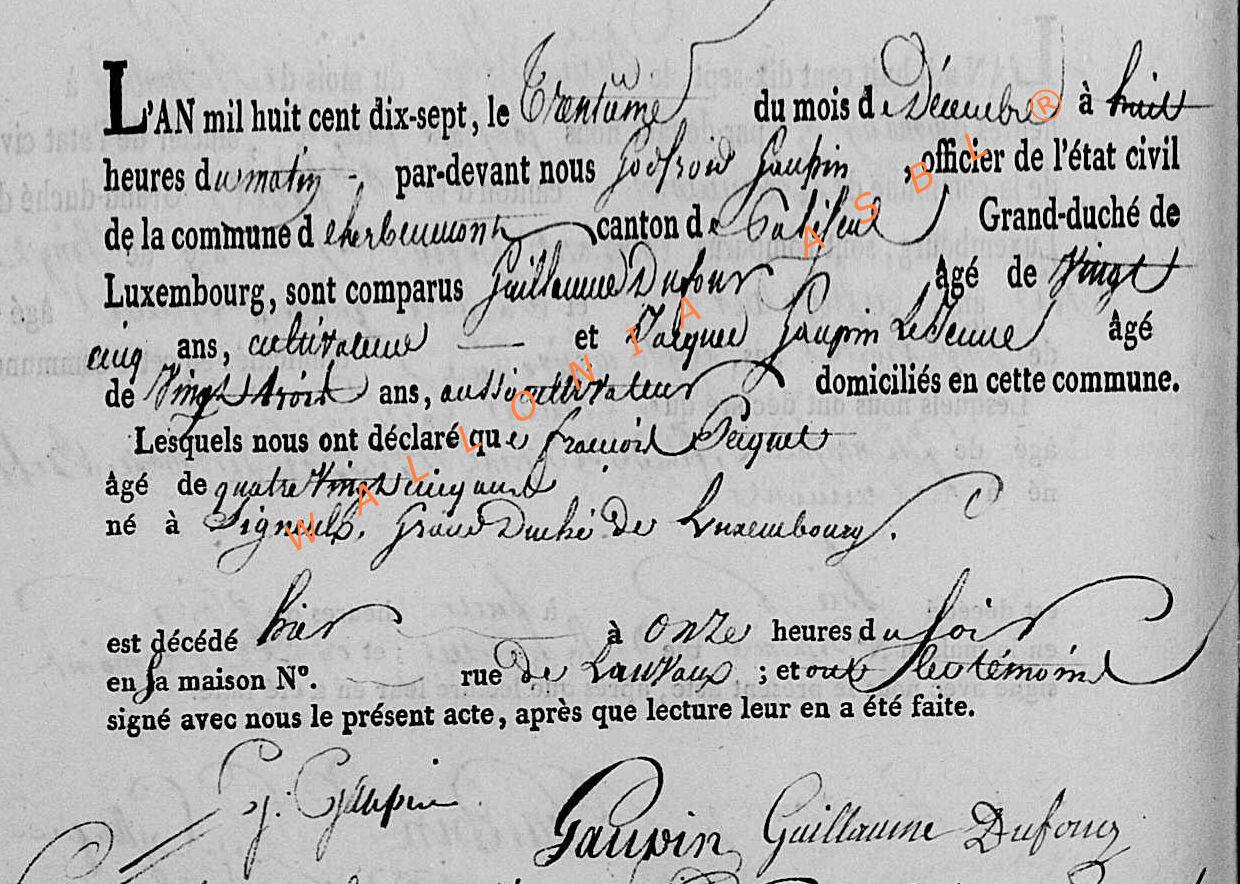 L'AN mil huit cent dix-sept, le Trentième du mois de Décembre à huit
heures du matin, par-devant nous Godfroid Gaupin, officier de l'état civil
de la commune d'herbeumont canton de Paliseul Grand-duché de
Luxembourg, sont comparus Guillaume Dufour âgé de vingt
cinq ans, cultivateur et Jacques Gaupin Le Jeune âgé
de Vingt trois ans, aussi cultivateur domiciliés en cette commune.
Lesquels nous ont déclaré que françois Peiquet
âgé de quatre Vingt cinq ans
né à Signeulx, Grand Duché de Luxembourg.
est décédé hier à onze heures du soir
en sa maison N°. rue de Lauvaux ; et ont les témoins
signé avec nous le présent acte, après que lecture leur en a été faite.
G. Gaupin Gaupin Guillaume Dufour
WALLONIA ASBL®